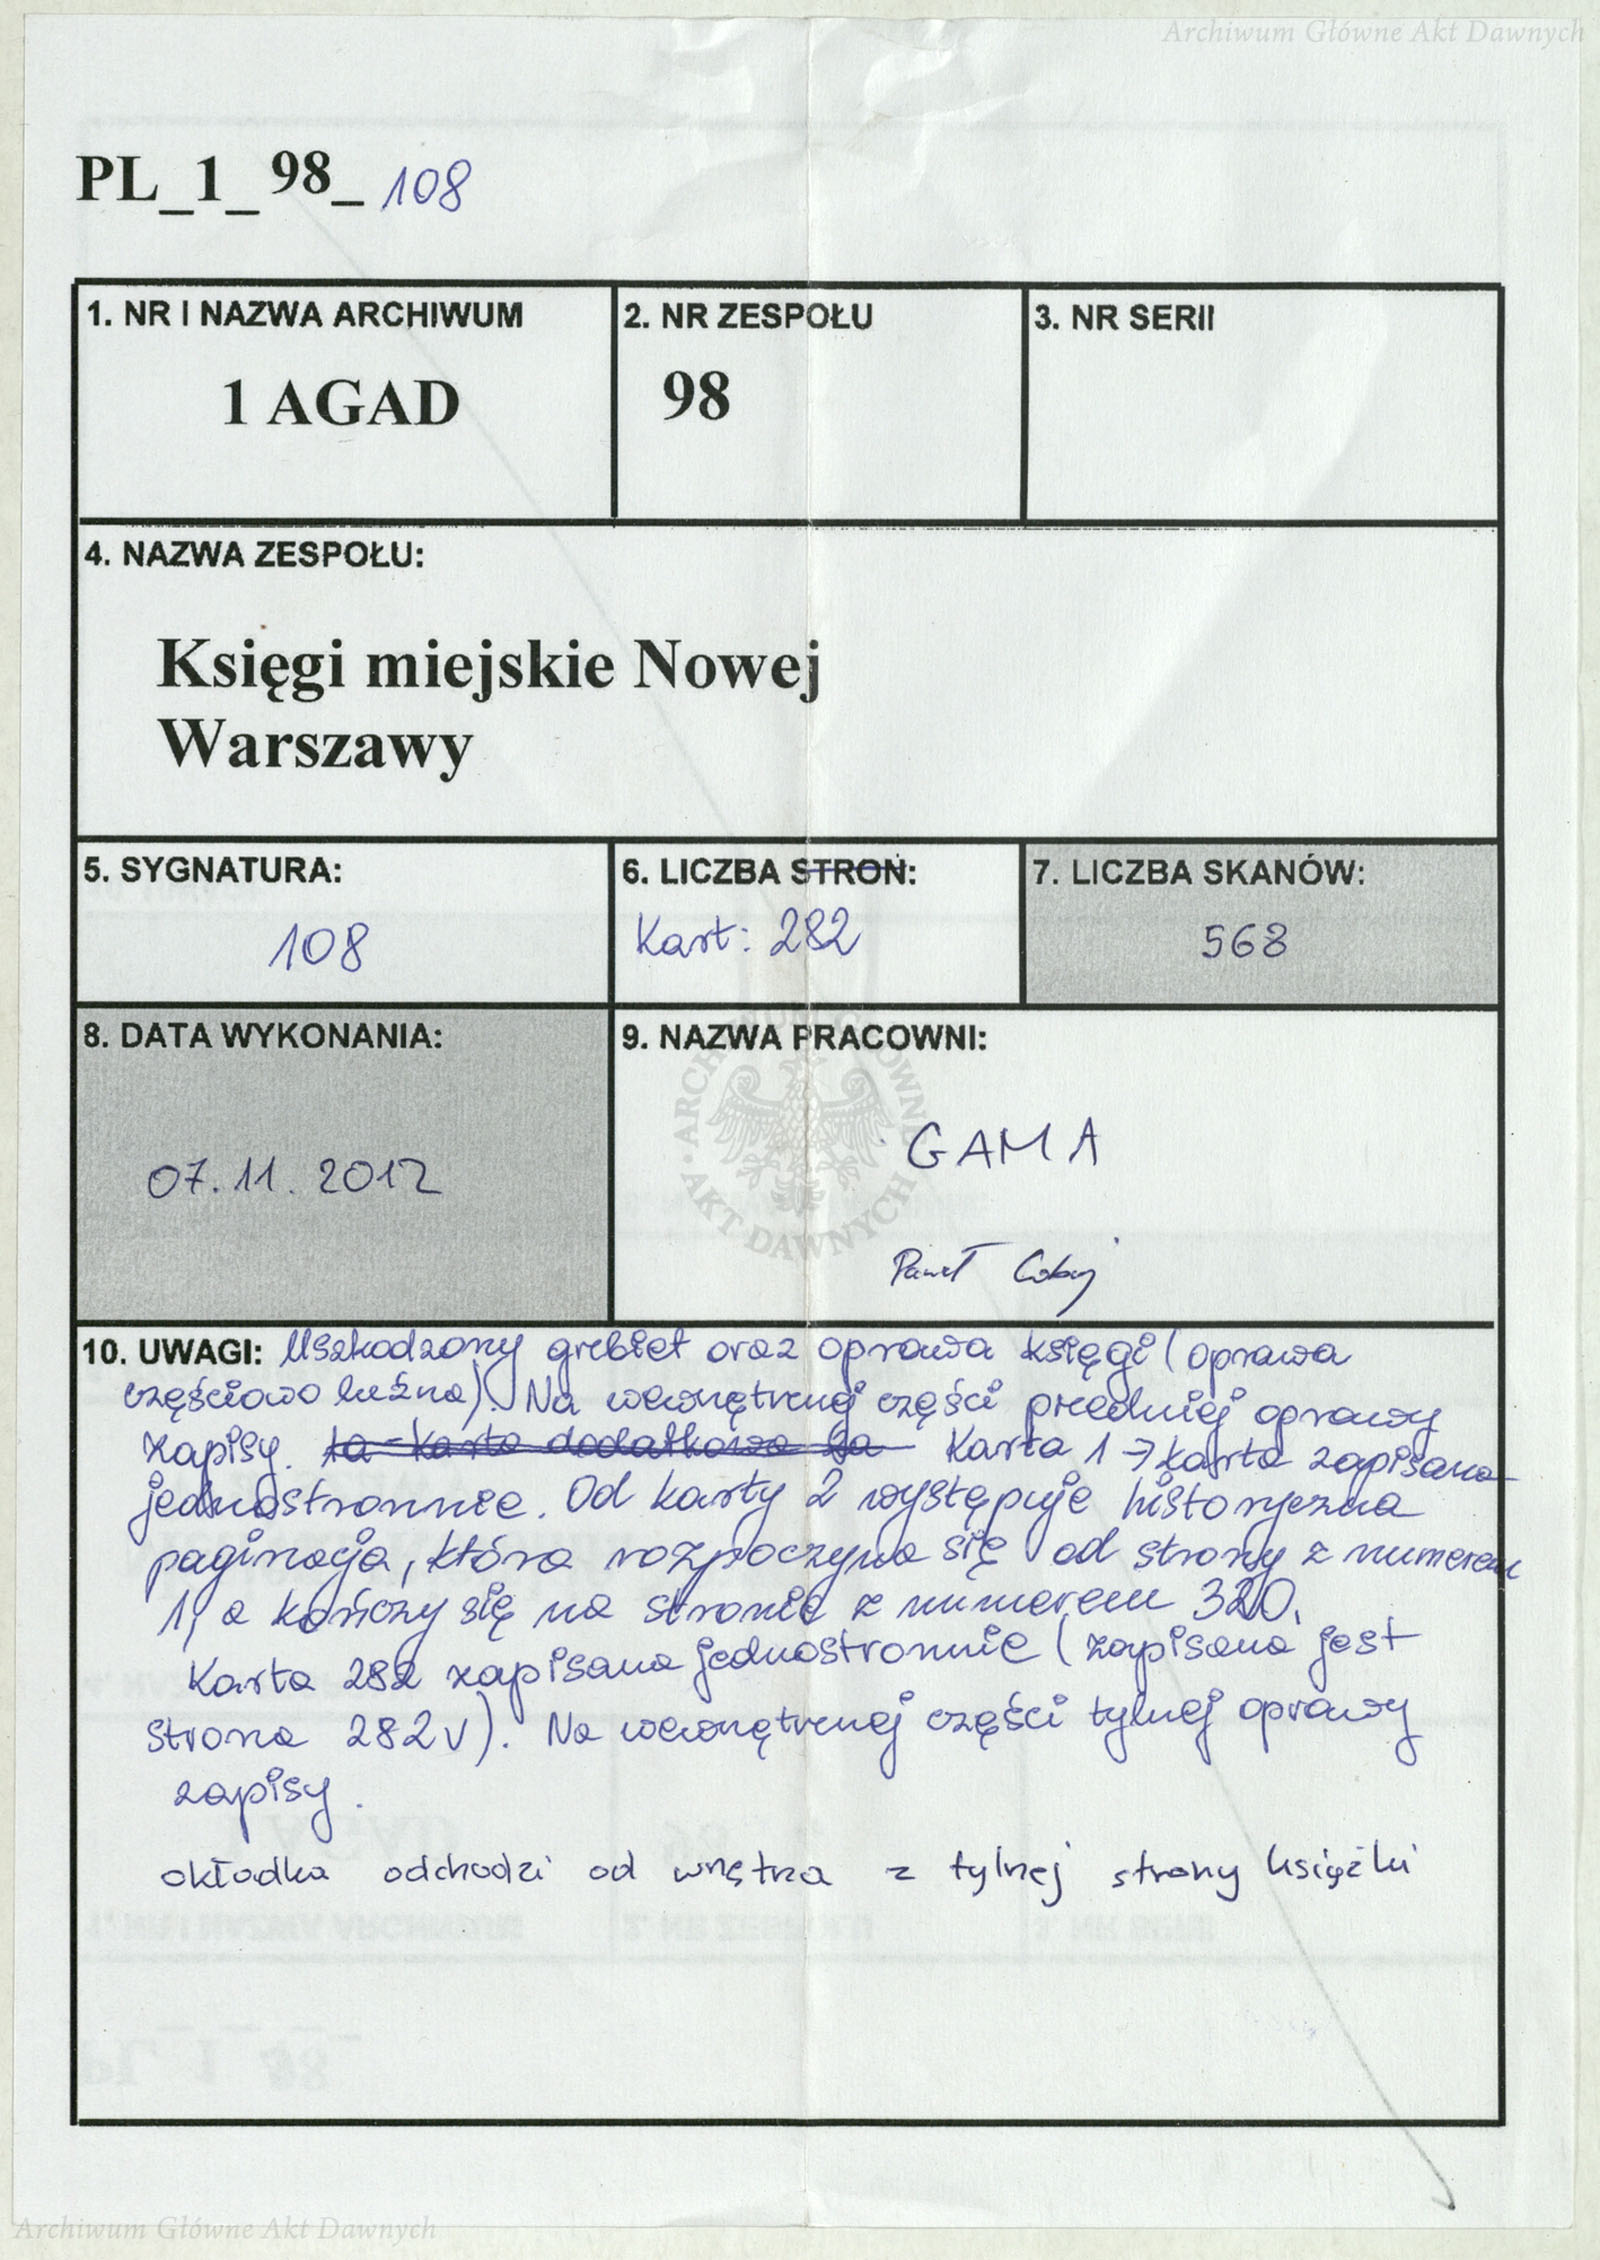 Archiwum Główne Akt Dawnych
PL_1_98_108
1. NR I NAZWA ARCHIWUM
1 AGAD
2. NR ZESPOŁU
98
3. NR SERII
4. NAZWA ZESPOŁU:
Księgi miejskie Nowej
Warszawy
5. SYGNATURA:
108
6. LICZBA STRON:
Kart: 282
7. LICZBA SKANÓW:
568
8. DATA WYKONANIA:
07.11.2012
9. NAZWA PRACOWNI:
GAMA
Paweł
ARCHIWUM GŁÓWNE AKT DAWNYCH
10. UWAGI: Uszkodzony grzbiet oraz oprawa księgi (oprawa
częściowo luźna). Na wewnętrznej części przedniej oprawy
zapisy. 1a - karta dodatkowa Karta 1 → karta zapisana
jednostronnie. Od karty 2 występuje historyczna
paginacja, która rozpoczyna się od strony z numerem
1, a kończy się na stronie z numerem 320.
Karta 282 zapisana jednostronnie (zapisana jest
strona 282v). Na wewnętrznej części tylnej oprawy
zapisy.
okładka odchodzi od wnętrza z tylnej strony książki
Archiwum Główne Akt Dawnych